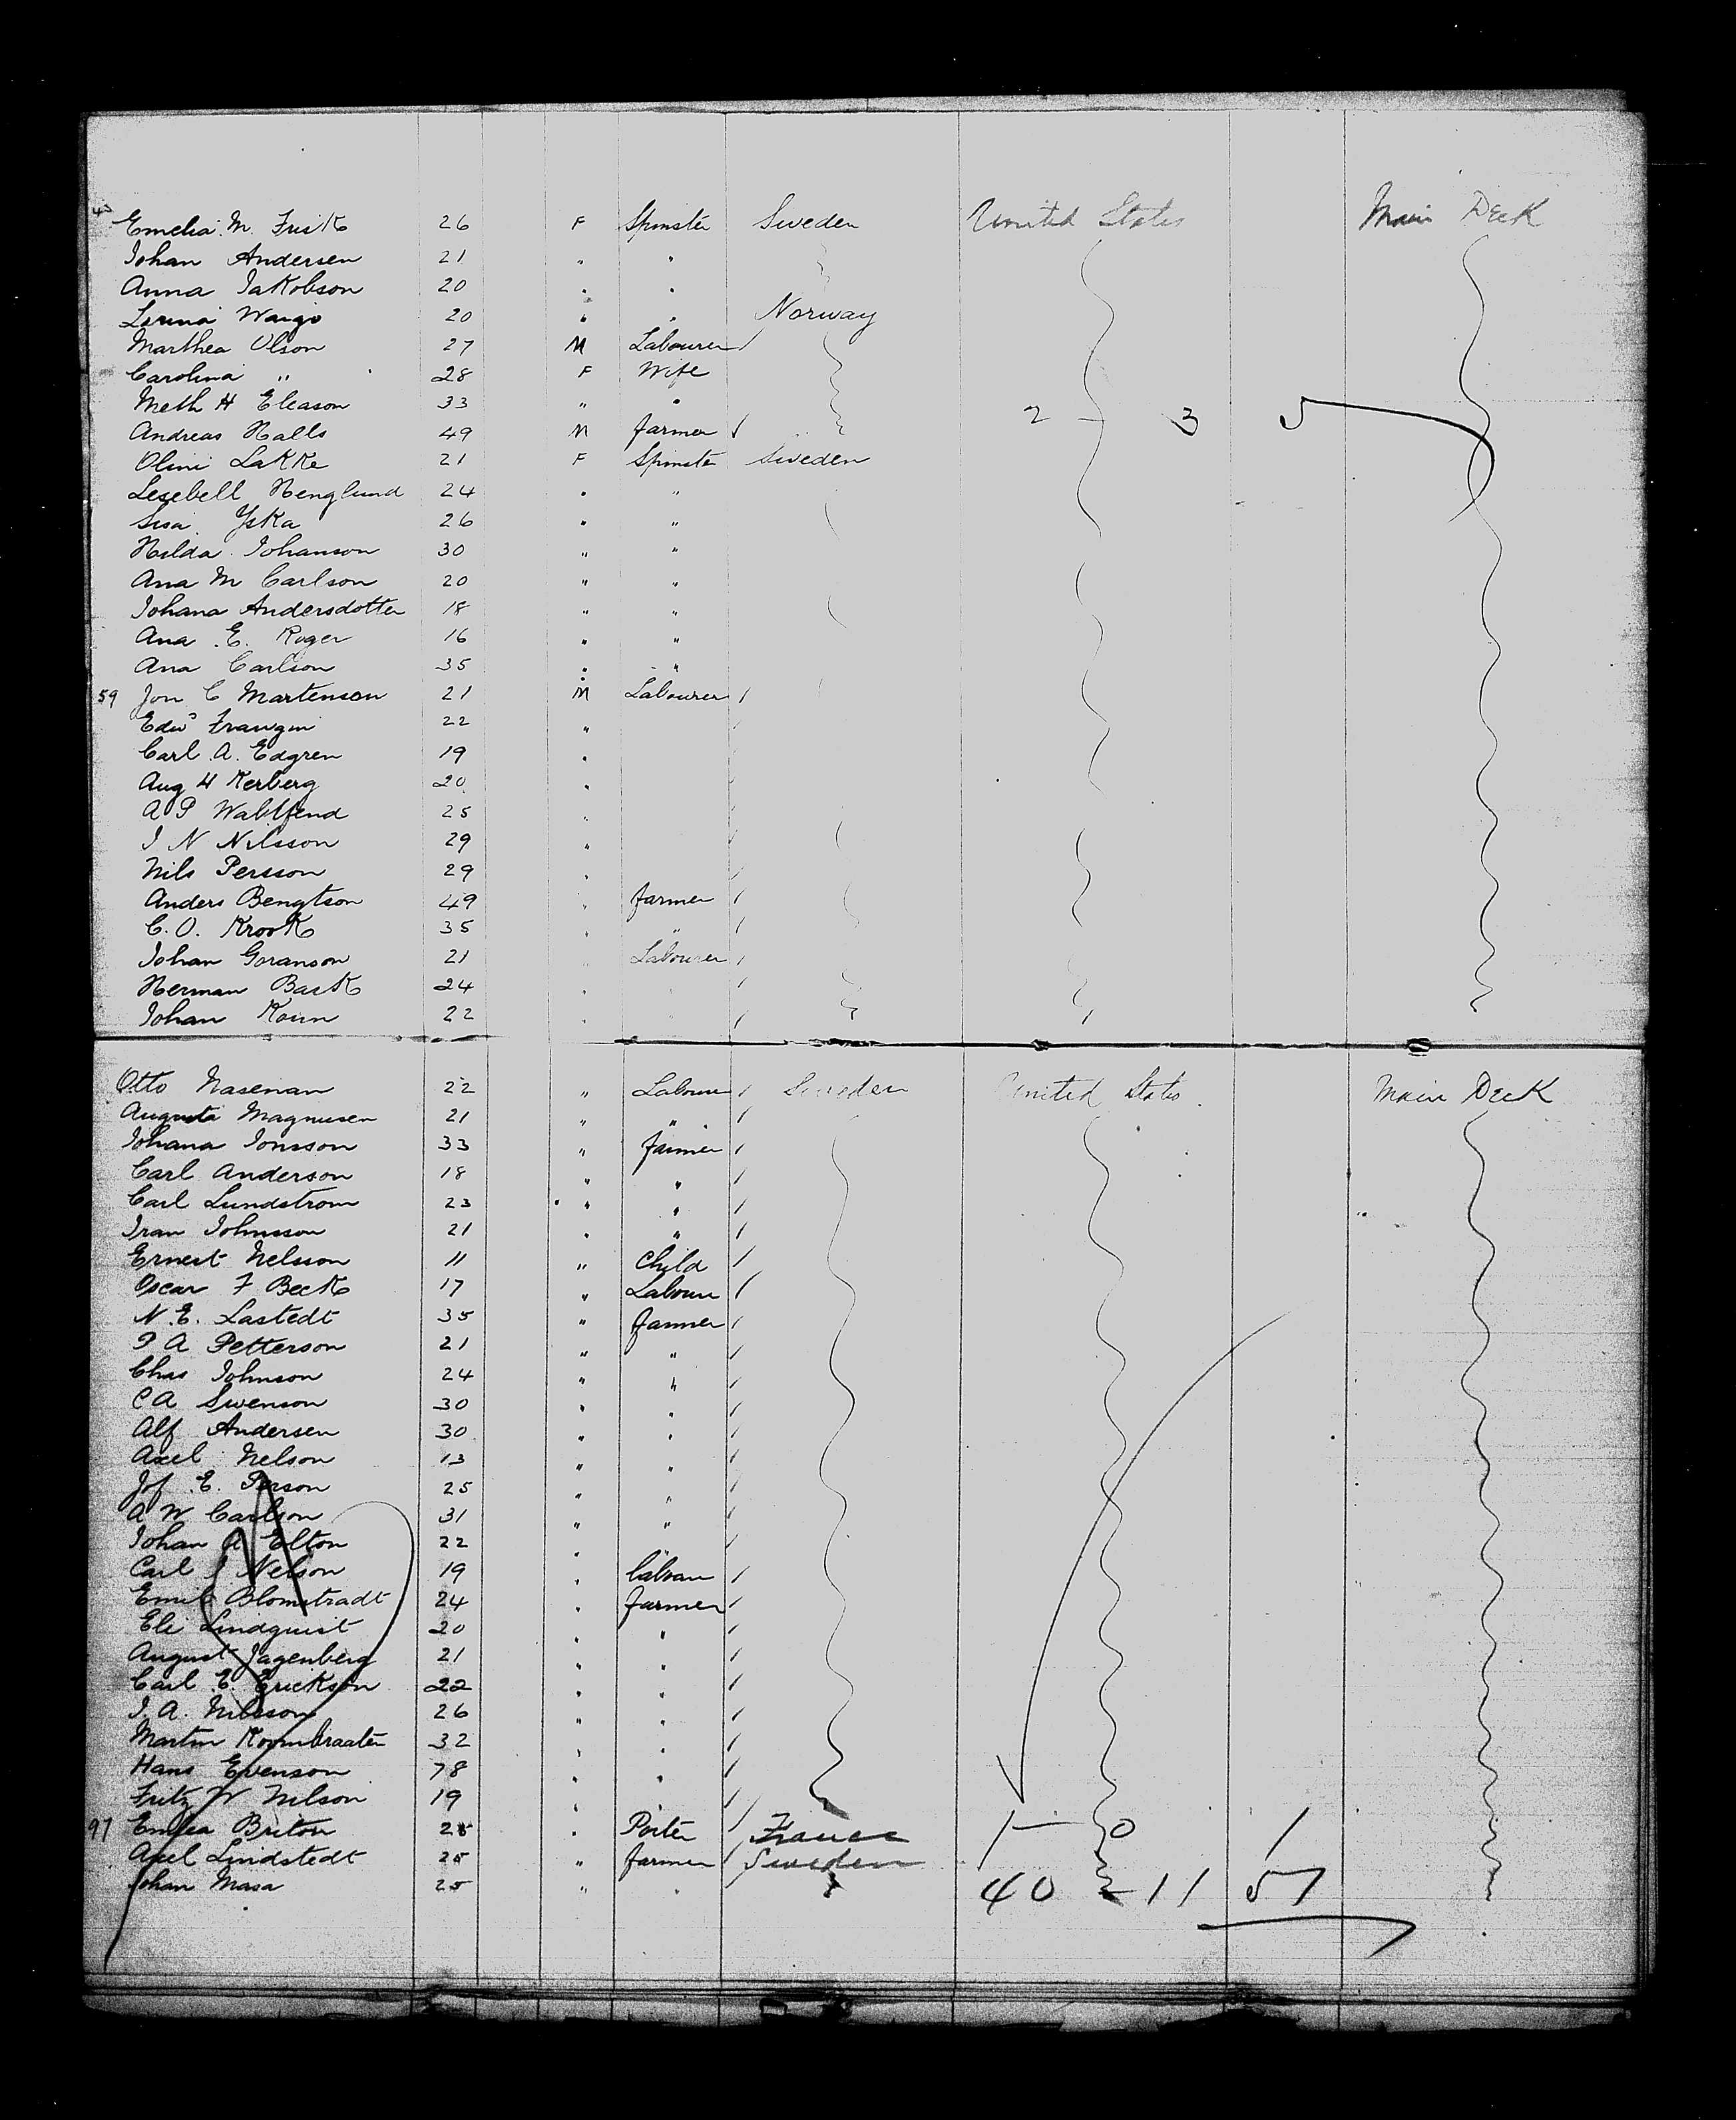 Emelia M. Frisk 26 F Spinster Sweden United States Main Deck
Johan Andersen 21 " "
Anna Jakobson 20 " "
Waigo 20 " " Norway
Marthea Olson 27 M Labourer
Carolina " 28 F Wife
Meth H Eleason 33 " " 2 - 3 5
Andreas Halls 49 M farmer
Olini Lakke 21 F Spinster Sweden
Lesebell Henglund 24 " "
Sisa 26 " "
Hilda Johanson 30 " "
Ana M Carlson 20 " "
Johana Andersdotter 18 " "
Ana E. Roger 16 " "
Ana Carlson 35 " "
59 Jon C Martenson 21 M Labourer
Edwd 22 "
Carl A. Edgren 19 "
Aug H Kerberg 20 "
A P 25 "
J N Nilsson 29 "
Nils Persson 29 "
Anders Bengtson 49 " farmer
C. O. Krook 35 " "
Johan Goranson 21 " Labourer
Herman Back 24 "
Johan 22 "
Otto Naseman 22 " Labourer Sweden United States Main Deck
Augusta Magnusen 21 " "
Johana Jonsson 33 " farmer
Carl Anderson 18 " "
Carl Lundstrom 23 " "
Ivan Johnsson 21 " "
Ernest Nelsson 11 " Child
Oscar F Beck 17 " Labour
N. E. Lastedt 35 " farmer
P A Petterson 21 " "
Chas Johnson 24 " "
C A Swenson 30 " "
Alf Andersen 30 " "
Axel Nelson 13 " "
Jof E. Person 25 " "
A W Carlson 31 " "
Johan A Elton 22 " "
Carl J Nelson 19 "
Emil Blomstradt 24 " farmer
Eli Lindquist 20 " "
August Jagenberg 21 " "
Carl E. Erickson 22 " "
J. A. Nilsson 26 " "
Martin 32 " "
Hans Evenson 78 " "
Fritz W Nilson 19 " "
97 Briton " Porter France 1 - 0 1
Axel Lindstedt 25 " farmer Sweden
Johan Masa 25 " " 40 - 11 51